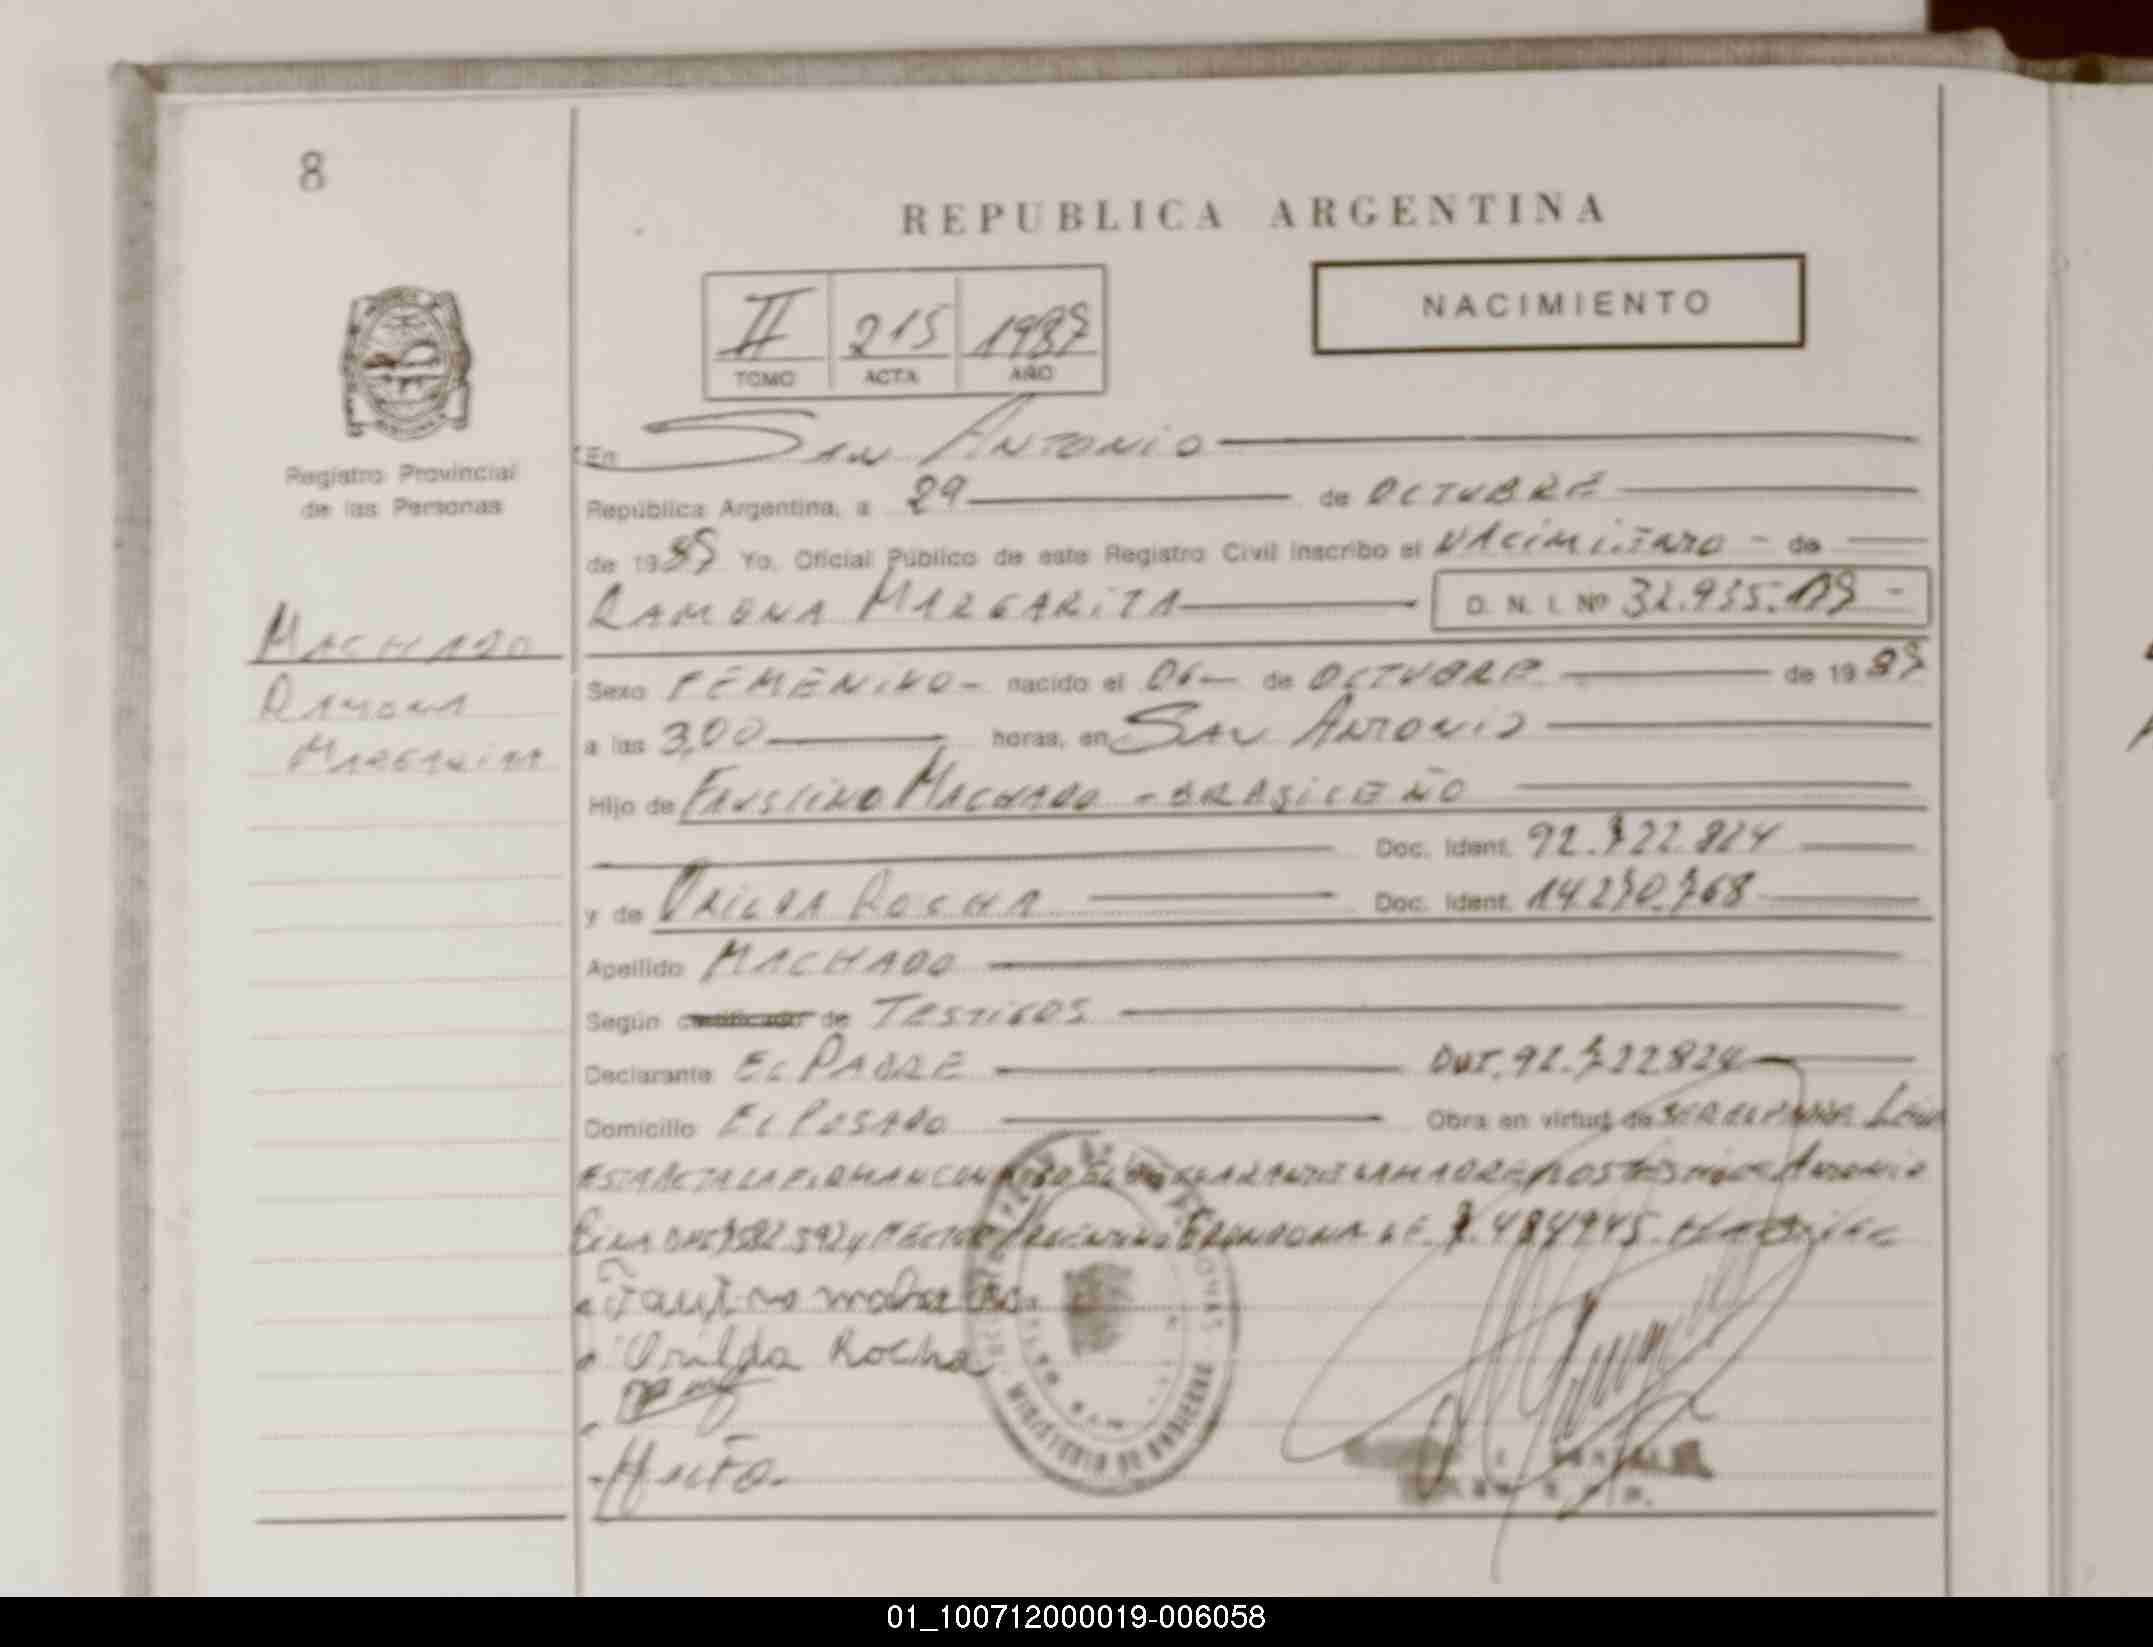 8
REPUBLICA ARGENTINA
NACIMIENTO
II 215 1987
TOMO ACTA AÑO
Registro Provincial
de las Personas
MACHADO
RAMONA
MARGARITA
En SAN ANTONIO
República Argentina, a 29 de OCTUBRE
de 1987 Yo, Oficial Público de este Registro Civil inscribo el NACIMIENTO - de
RAMONA MARGARITA D. N. I. Nº 32.935.
Sexo FEMENINO - nacido el 06 - de OCTUBRE de 1987
a las 3,00 horas, en SAN ANTONIO
Hijo de FAUSTINO MACHADO - BRASILEÑO
Doc. Ident. 92.722.824
y de ORILDA ROCHA Doc. Ident. 14.270.768
Apellido MACHADO
Según certificado de TESTIGOS
Declarante EL PADRE DNI. 92.722824
Domicilio EL ROSADO Obra en virtud de
ESTA ACTA LA FIRMAN CONMIGO EL DECLARANTE LA MADRE ANTONIO
Orilda Rocha
MINISTERIO DE GOBIERNO
01_100712000019-006058